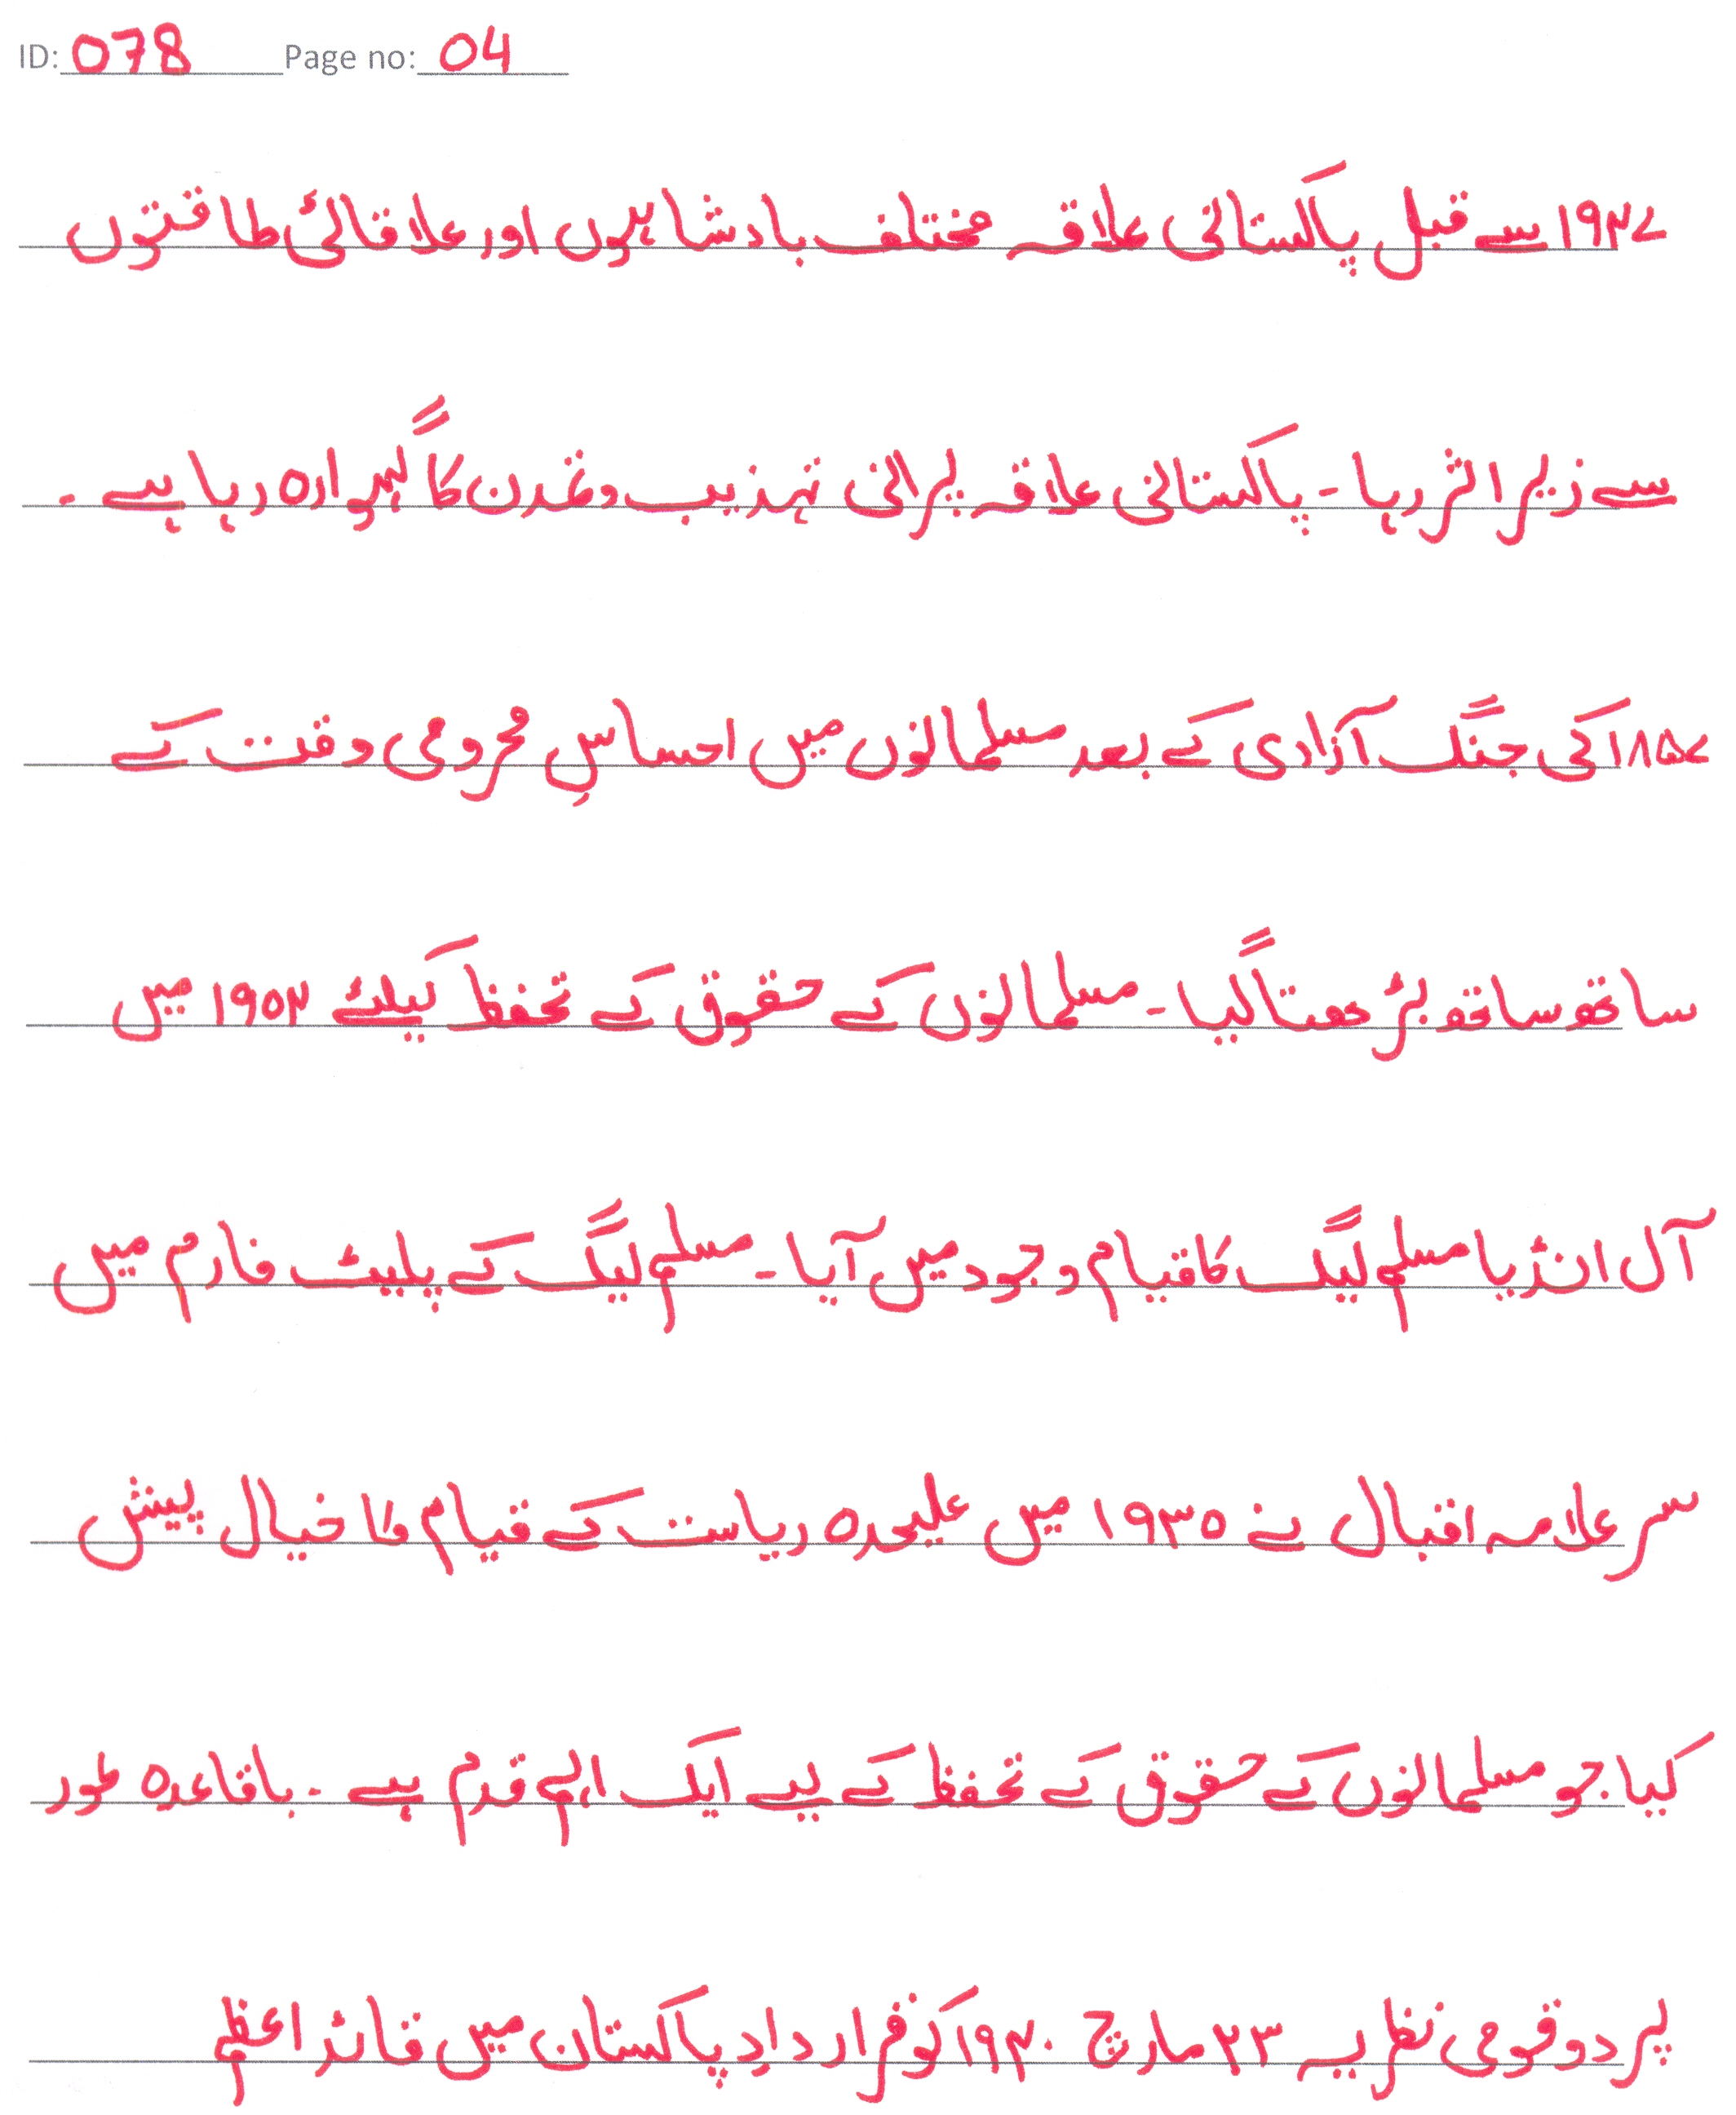 ID: 078 Page no: 04
۱۹۴۷ سے قبل پاکستانی علاقہ مختلف بادشاہوں اور علاقائی طاقتوں
سے زیر اثر رہا - پاکستانی علاقہ پرانی تہذیب و تمدن کا گہوارہ رہا ہے -
۱۸۵۷ کی جنگ آزادی کے بعد مسلمانوں میں احساسِ محرومی وقت کے
ساتھ ساتھ بڑھتا گیا - مسلمانوں کے حقوق کے تحفظ کیلئے ۱۹۰۴ میں
آل انڈیا مسلم لیگ کا قیام وجود میں آیا - مسلم لیگ کے پلیٹ فارم میں
سر علامہ اقبال نے ۱۹۳۰ میں علیحدہ ریاست کے قیام کا خیال پیش
کیا جو مسلمانوں کے حقوق کے تحفظ کے لیے ایک اہم قدم ہے - باقاعدہ طور
پر دو قومی نظریہ ۲۳ مارچ ۱۹۴۰ کو قرار داد پاکستان میں قائد اعظم